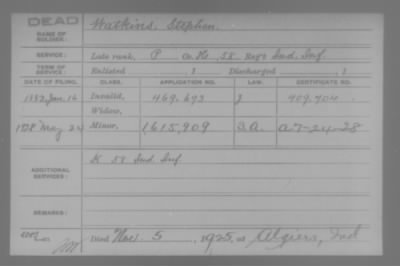 DEAD
NAME OF SOLDIER: Watkins, Stephen.
SERVICE: Late rank, P Co. K, 58 Reg't Ind. Inf.
TERM OF SERVICE: Enlisted , 1 Discharged , 1
DATE OF FILING. CLASS. APPLICATION NO. LAW. CERTIFICATE NO.
1883 Jan. 16 Invalid, 469.693 J 409.704
Widow,
1928 May 24 Minor, 1,615,909 S.A. a-7-24-28
ADDITIONAL SERVICES: K 58 Ind Inf
REMARKS:
Died Nov. 5, 1925, at Algiers, Ind